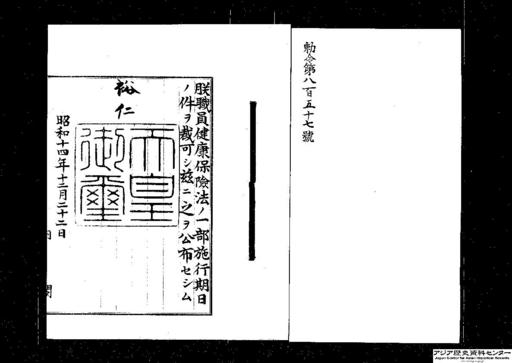 勅令第八百五十七號
朕職員健康保險法ノ一部施行期日
ノ件ヲ裁可シ茲ニ之ヲ公布セシム
裕仁
天皇
御璽
昭和十四年十二月二十二日
内
閣
アジア歴史資料センター
Japan Center for Asian Historical Records